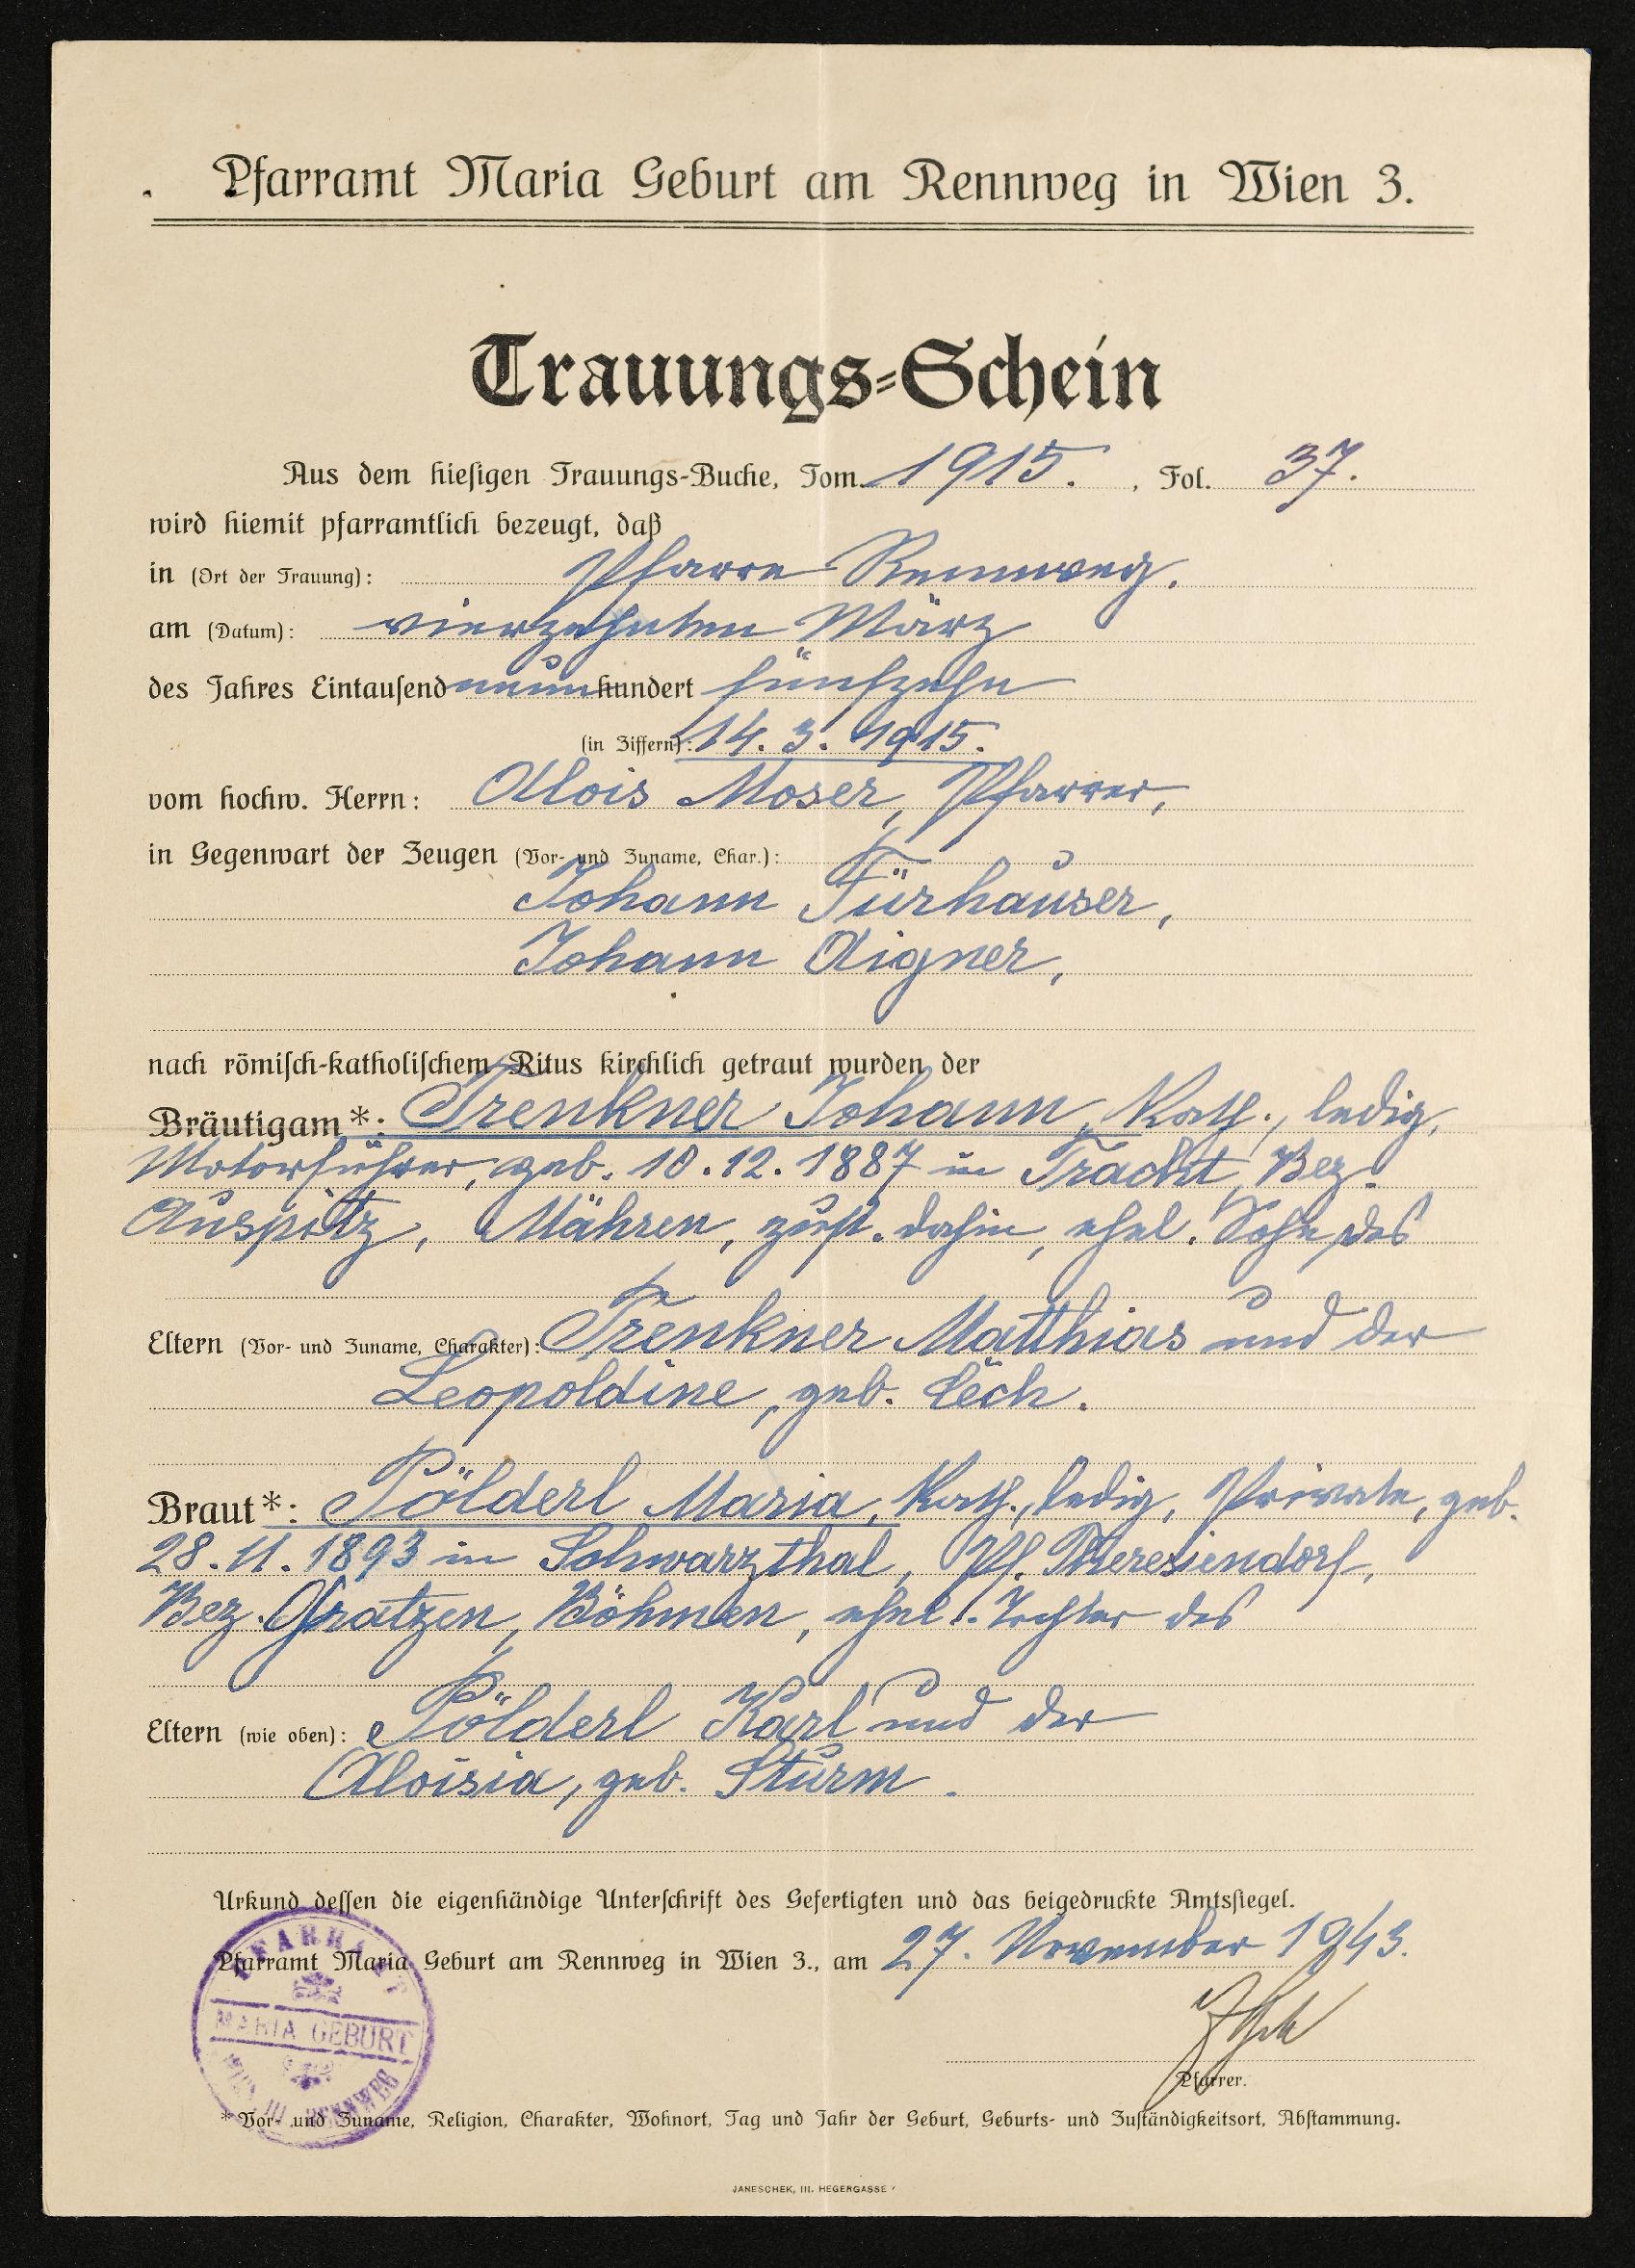 Pfarramt Maria Geburt am Rennweg in Wien 3.
Trauungs-Schein
Aus dem hiesigen Trauungs-Buche, Tom. 1915. , Fol. 37.
wird hiemit pfarramtlich bezeugt, daß
in (Ort der Trauung): Pfarre Rennweg.
am (Datum): vierzehnten März
des Jahres Eintausendneunhundert fünfzehn
(in Ziffern): 14. 3. 1915.
vom hochw. Herrn: Alois Moser, Pfarrer,
in Gegenwart der Zeugen (Vor- und Zuname, Char.):
Johann Fürhauser,
Johann Aigner,
nach römisch-katholischem Ritus kirchlich getraut wurden der
Bräutigam*: Trenkner Johann, kath., ledig,
Motorführer, geb. 10.12.1887 in Tracht, Bez.
Auspitz, Mähren, zust. dahin, ehel. Sohn des
Eltern (Vor- und Zuname, Charakter): Trenkner Matthias und der
Leopoldine, geb. Cech.
Braut*: Pölderl Maria, kath., ledig, Private, geb.
28.11.1893 in Schwarzthal, Pf. Theresiendorf,
Bez. Gratzen, Böhmen, ehel. Tochter des
Eltern (wie oben): Pölderl Karl und der
Aloisia, geb. Sturm.
Urkund dessen die eigenhändige Unterschrift des Gefertigten und das beigedruckte Amtssiegel.
Pfarramt Maria Geburt am Rennweg in Wien 3., am 27. November 1943.
PFARRAMT
MARIA GEBURT
WIEN III. RENNWEG
Pfarrer.
* Vor- und Zuname, Religion, Charakter, Wohnort, Tag und Jahr der Geburt, Geburts- und Zuständigkeitsort, Abstammung.
JANESCHEK, III. HEGERGASSE